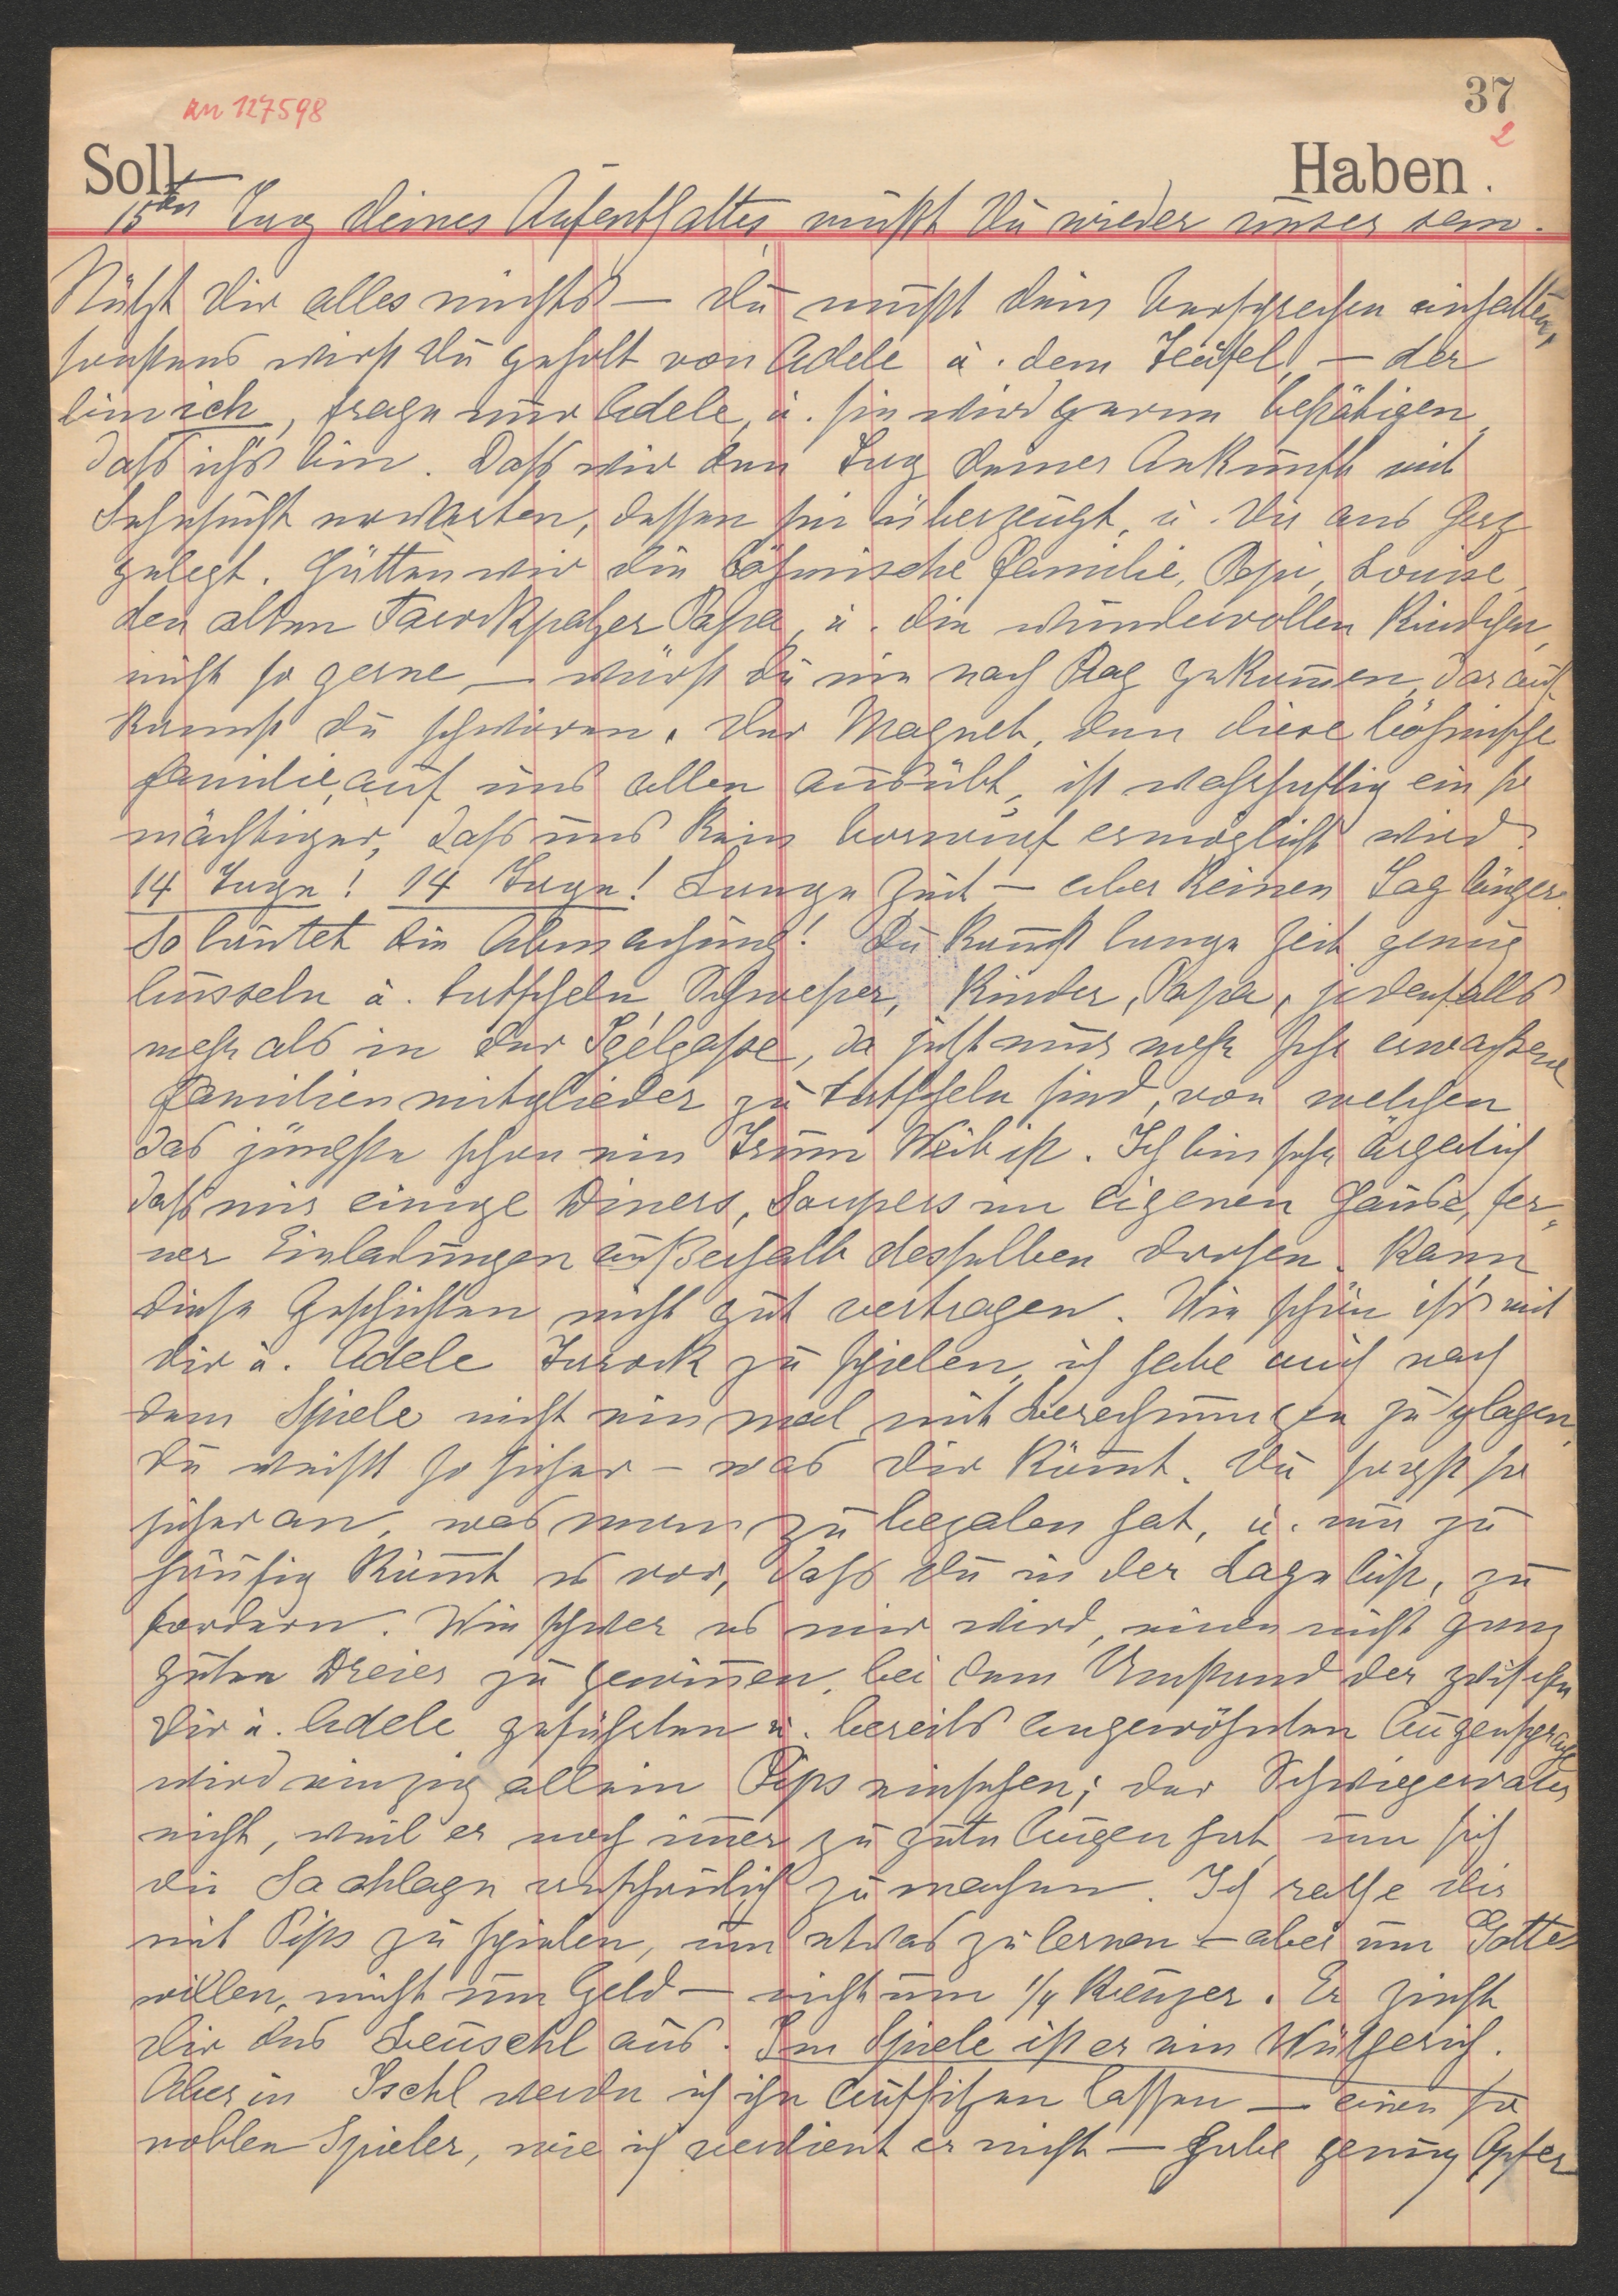 an 127598
37
2
Soll
Haben.
15ten Tag deines Aufenthaltes mußt Du wieder unser sein.
Nützt Dir alles nichts – Du mußt dein Versprechen einhalten,
sonstens wirst Du geholt von Adele u. dem Teufel, – der
bin ich, frage nur Adele, u. sie wird gerne bestätigen,
daß ich's bin. Daß wir den Tag deiner Ankunft mit
Sehnsucht erwarten, dessen sei überzeugt, u. Dir ans Herz
gelegt. Hätten wir die böhmische Familie, Pepi, Louise,
den alten Tarokpatzer Papa, u. die wundervollen Kindchen
nicht so gerne – würst Du nie nach Prag gekommen, darauf
kannst Du schwören. Der Magnet, den diese böhmische
Familie, auf uns allen ausübt, ist wahrhaftig ein so
mächtiger, daß uns kein Vorwurf ermöglicht wird.
14 Tage! 14 Tage! Lange Zeit – aber keinen Tag länger.
So lautet die Abmachung! Du kannst lange Zeit genug
busseln u. tatscheln, Schwester, Kinder, Papa, jedenfalls
mehr als in der Pelgasse, da jetzt nur mehr sehr erwachsene
Familienmitglieder zu tatscheln sind, von welchen
das jüngste schon ein Trum Weib ist. Ich bin sehr ärgerlich
daß mir einige Diners, Soupers im eigenen Hause, fer-
ner Einladungen außerhalb desselben drohen. Kann
diese Geschichten nicht gut vertragen. Wie schön ist's mit
Dir u. Adele Tarock zu spielen, ich habe mich nach
dem Spiele nicht einmal mit Berechnungen zu plagen,
Du weißt so sicher – was Dir kommt. Du sagst so
sicher an, was man zu bezalen hat, u. nur zu
häufig kommt es vor, daß Du in der Lage bist, zu
fordern. Wie schwer es mir wird, einen nicht ganz
guten Dreier zu gewinnen, bei dem Umstand der zwischen
Dir u. Adele geführten u. bereits angewöhnten Augensprache
wird einzig allein Pips einsehen; der Schwiegervater
nicht, weil er noch immer zu gute Augen hat, um sich
die Sachlage anschaulich zu machen. Ich rathe Dir
mit Pips zu spielen, um etwas zu lernen – aber um Gottes
willen, nicht um Geld – nicht um 1/4 Kreuzer. Er zieht
Dir das Leuschl aus. Im Spiele ist er ein Wütherich.
Aber in Ischl werde ich ihn aufsitzen lassen – einen so
noblen Spieler, wie ich verdient er nicht – habe genug Opfer